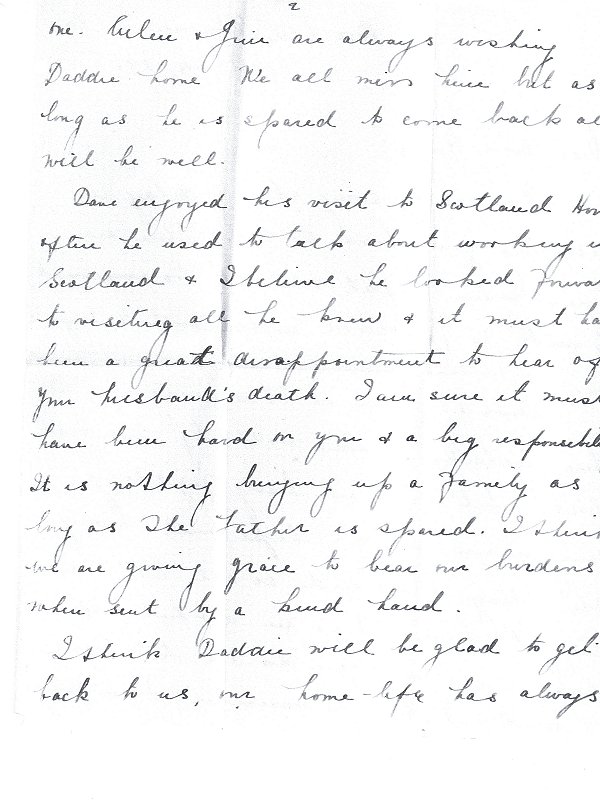 2
one. Helen & Jim are always wishing
Daddie home We all miss him but as
long as he is spared to come back al
will be well.
Dave enjoyed his visit to Scotland How
often he used to talk about working in
Scotland & I believe he looked forwar
to visiting all he knew & it must ha
been a great disappointment to hear of
your husband's death. I am sure it must
have been hard on you & a big responsibili
It is nothing bringing up a family as
long as the father is spared. I think
we are giving grace to bear our burdens
when sent by a kind hand.
I think Daddie will be glad to get
back to us, our home-life has always